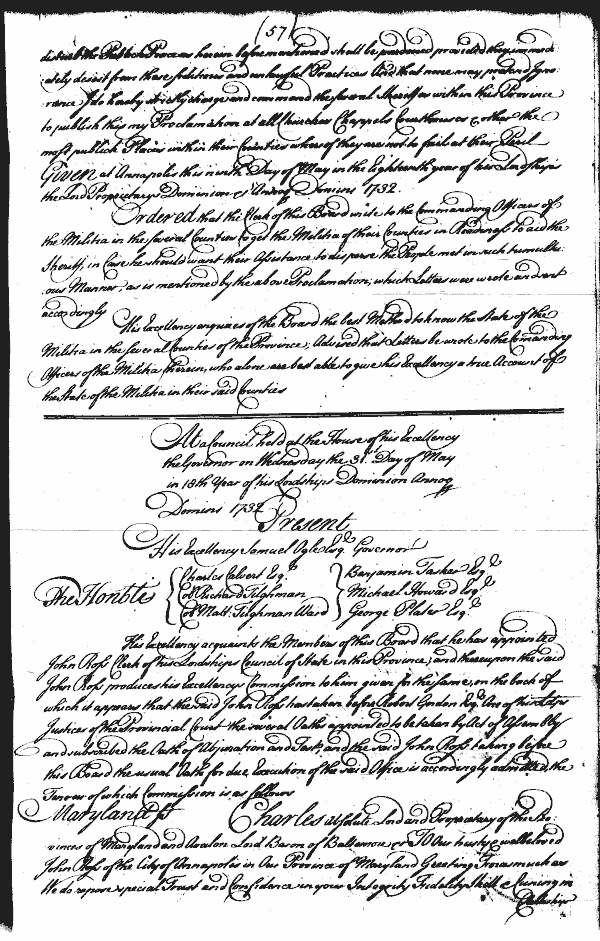 (57)
disturb the Publick Peace as herein before mentioned shall be pardoned provided they immedi
ately desist from those seditious and unlawful Practices And that none may pretend Igno
rance I do hereby strictly charge and command the several Sheriffs within this Province
to publish this my Proclamation at all Churches Chappels Courthouses & other the
most publick Places within their Counties whereof they are not to fail at their Peril
Given at Annapolis this ninth Day of May in the Eighteenth year of his Lordship's
the Lord Proprietary's Dominion &c Annoq Domini 1732.
Ordered that the Clerk of this Board write to the Commanding Officers of
the Militia in the several Counties to get the Militia of their Counties in Readiness to aid the
Sheriff, in Case he should want their Assistance to disperse the People met in such tumultu
ous Manner, as is mentioned by the above Proclamation; which Letters were wrote and sent
accordingly
His Excellency enquires of the Board the best Method to know the State of the
Militia in the several Counties of the Province; Advised that Letters be wrote to the Comanding
Officers of the Militia therein, who alone are best able to give his Excellency a true Account of
the State of the Militia in their said Counties
At a Council held at the House of his Excellency
the Governor on Wednesday the 31st Day of May
in 18th Year of his Lordships Dominion Annoq
Domini 1732
Present
His Excellency Samuel Ogle Esqr. Governor
The Honble
Charles Calvert Esqr
Col Richard Tilghman
Col Matt. Tilghman Ward
Benjamin Tasker Esqr
Michael Howard Esqr
George Plater Esqr
His Excellency acquaints the Members of this Board that he has appointed
John Ross Clerk of his Lordships Council of State in this Province; and thereupon the said
John Ross produces his Excellencys Commission to him given for the same, on the back of
which it appears that the said John Ross has taken before Robert Gordon Esqr. One of his Ldps
Justices of the Provincial Court the several Oaths appointed to be taken by Act of Assembly
and subscribed the Oath of Abjuration and Test, and the said John Ross taking before
this Board the usual Oath for due Execution of the said Office is accordingly admitted, the
Tenour of which Commission is as follows
Maryland ss
Charles absolute Lord and Proprietary of the Pro
vinces of Maryland and Avalon Lord Baron of Baltemore &c To Our trusty & wellbeloved
John Ross of the City of Annapolis in Our Province of Maryland Greeting Forasmuch as
We do repose special Trust and Confidence in your Integrity Fidelity Skill & Cuning in
Clerkship